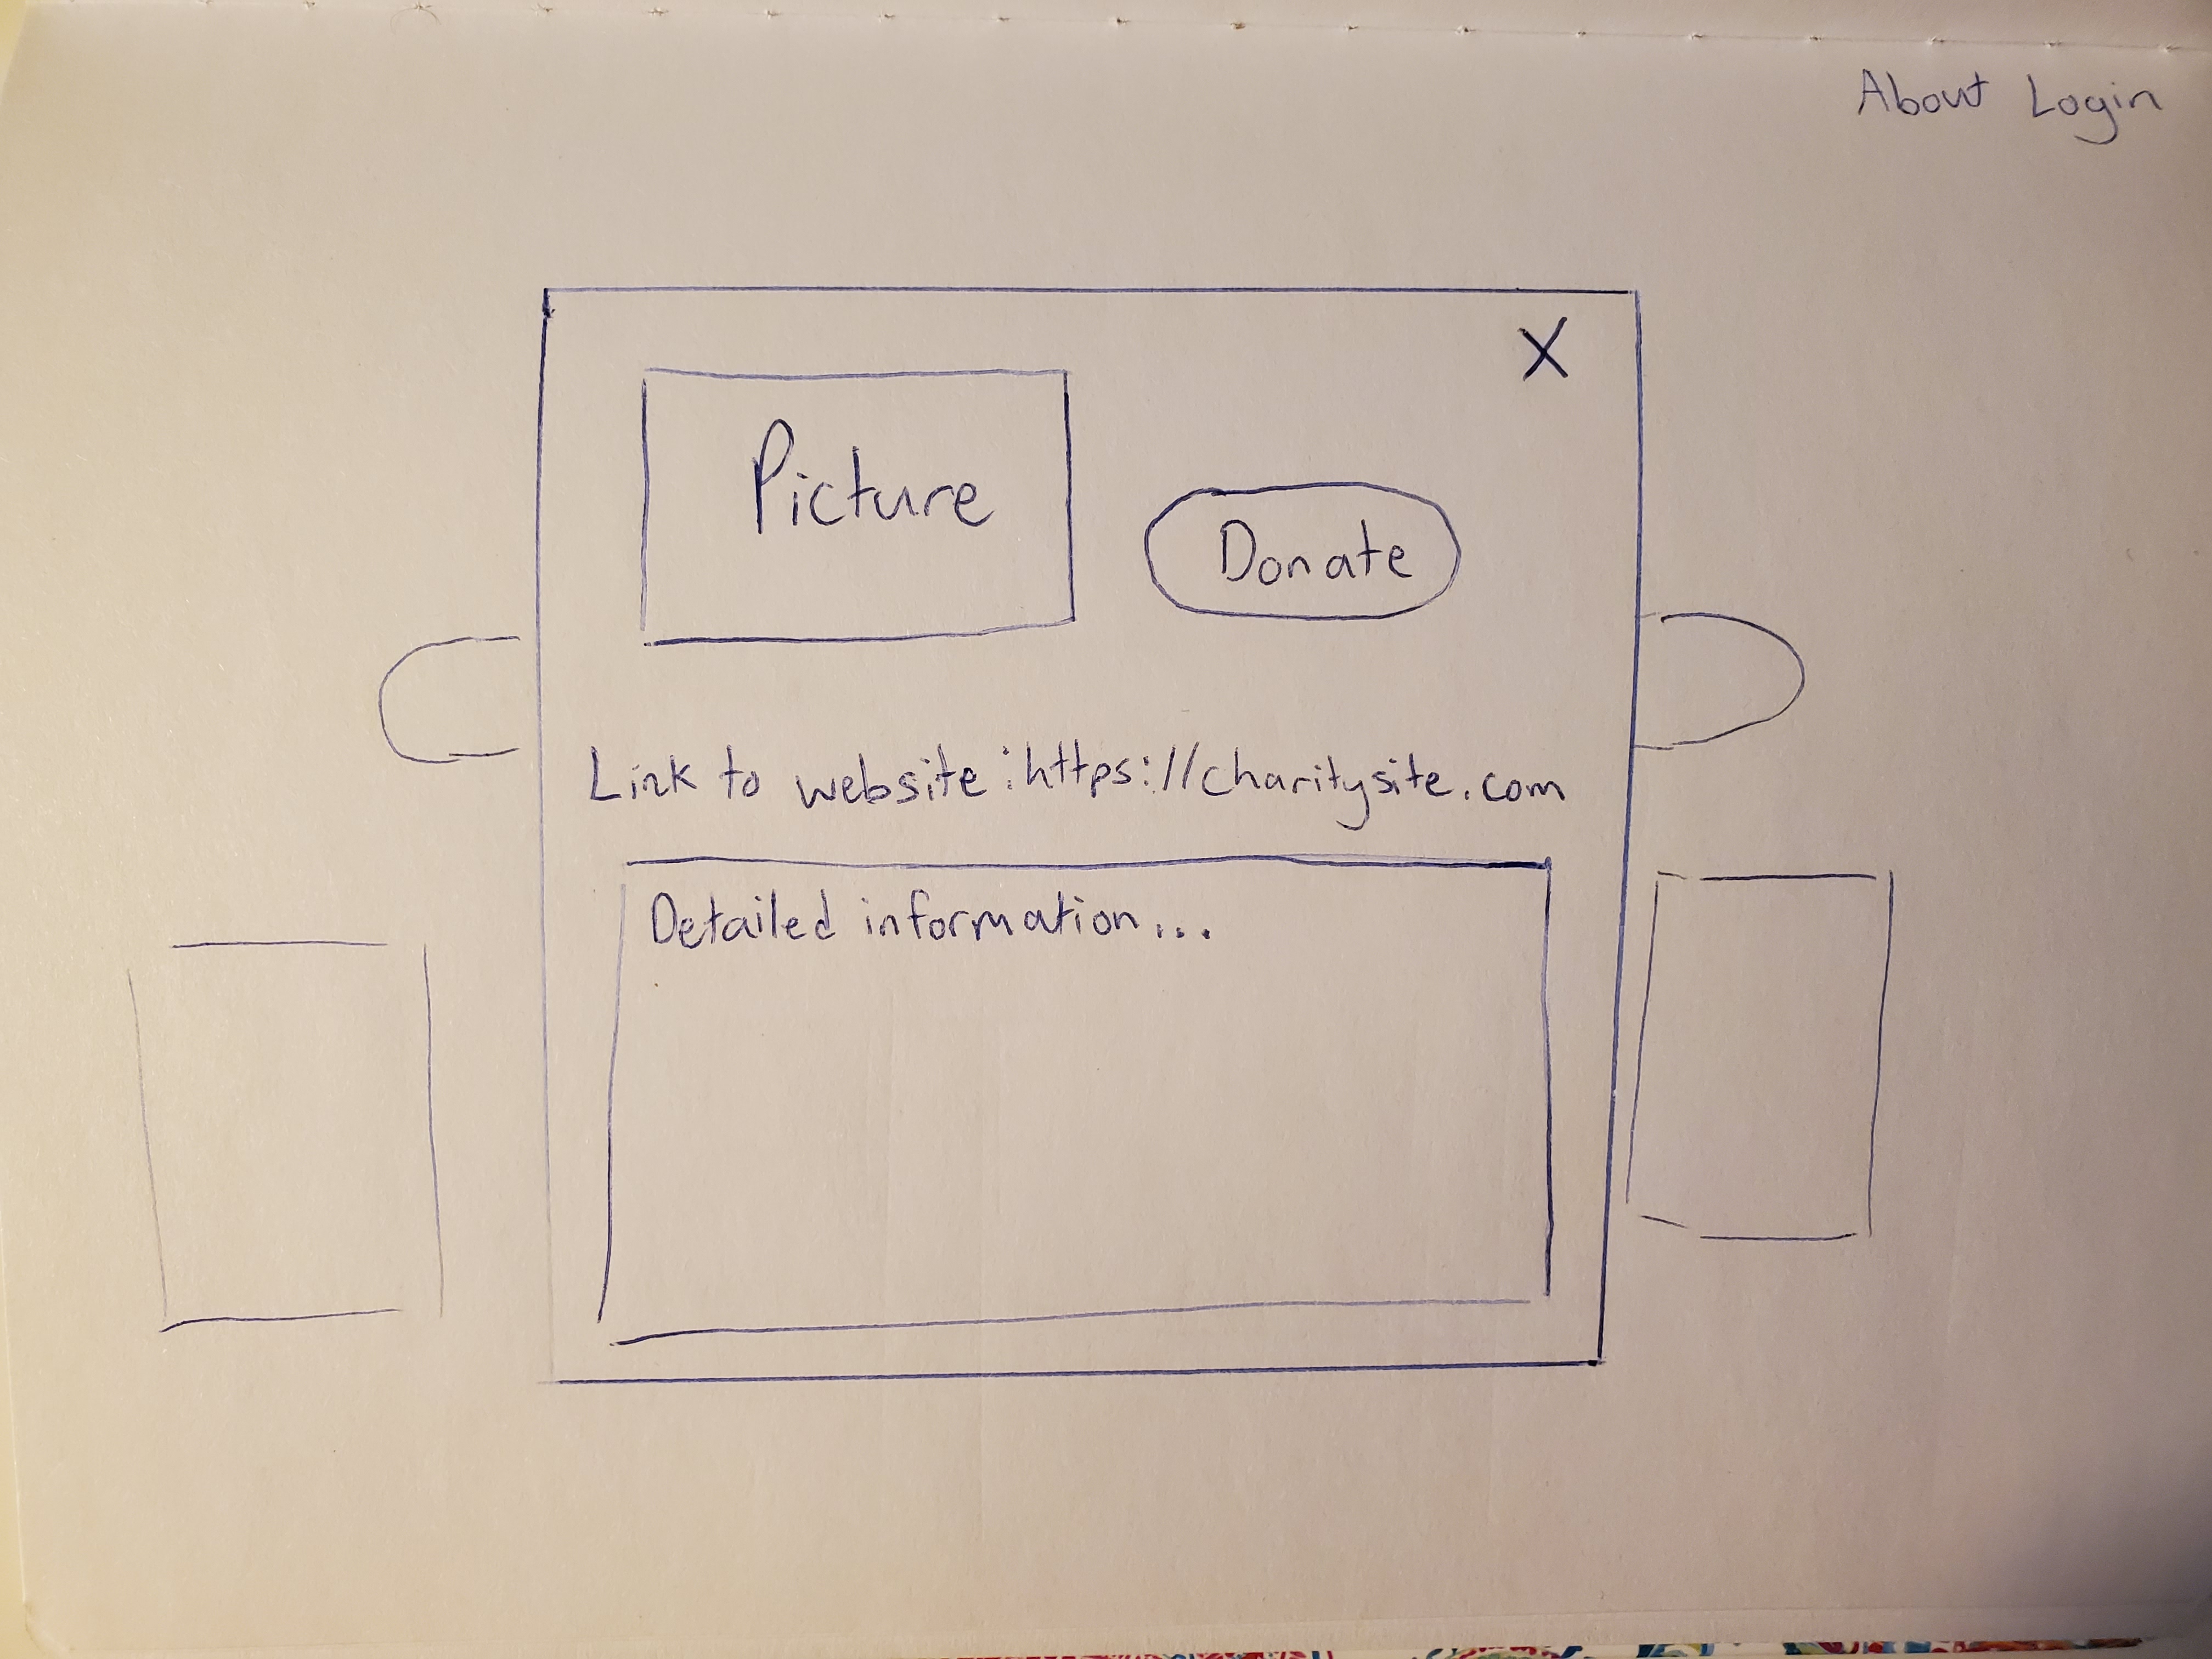 About Login
X
Picture
Donate
Link to website: https://charitysite.com
Detailed information...